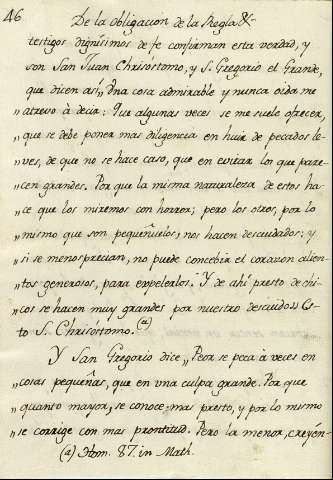 46
De la Obligacion de la Regla &
testigos dignísimos de fe confirman esta verdad, y
son San Juan Chrisóstomo, y S. Gregorio el Grande,
que dicen así „ Una cosa admirable y nunca oida me
atrevo à decir: Que algunas veces se me suele ofrecer,
„ que se debe poner mas diligencia en huir de pecados le-
„ ves, de que no se hace caso, que en evitar los que pare-
„ cen grandes. Por que la misma naturaleza de estos ha-
„ ce que los miremos con horror; pero los otros, por lo
„ mismo que son pequeñuelos, nos hacen descuidados: y
„ si se menosprecian, no puede concebir el corazon alien-
„ tos generosos, para expelerlos. Y de ahí presto de chi-
„ cos se hacen muy grandes por nuestro descuido „ Es-
to S. Chrisóstomo. (a)
Y San Gregorio dice „ Peor se peca à veces en
„ cosas pequeñas, que en una culpa grande. Por que
„ quanto mayor, se conoce mas presto, y por lo mismo
„ se corrige con mas prontitud. Pero la menor, creyén-
(a) Hom. 87. in Math.